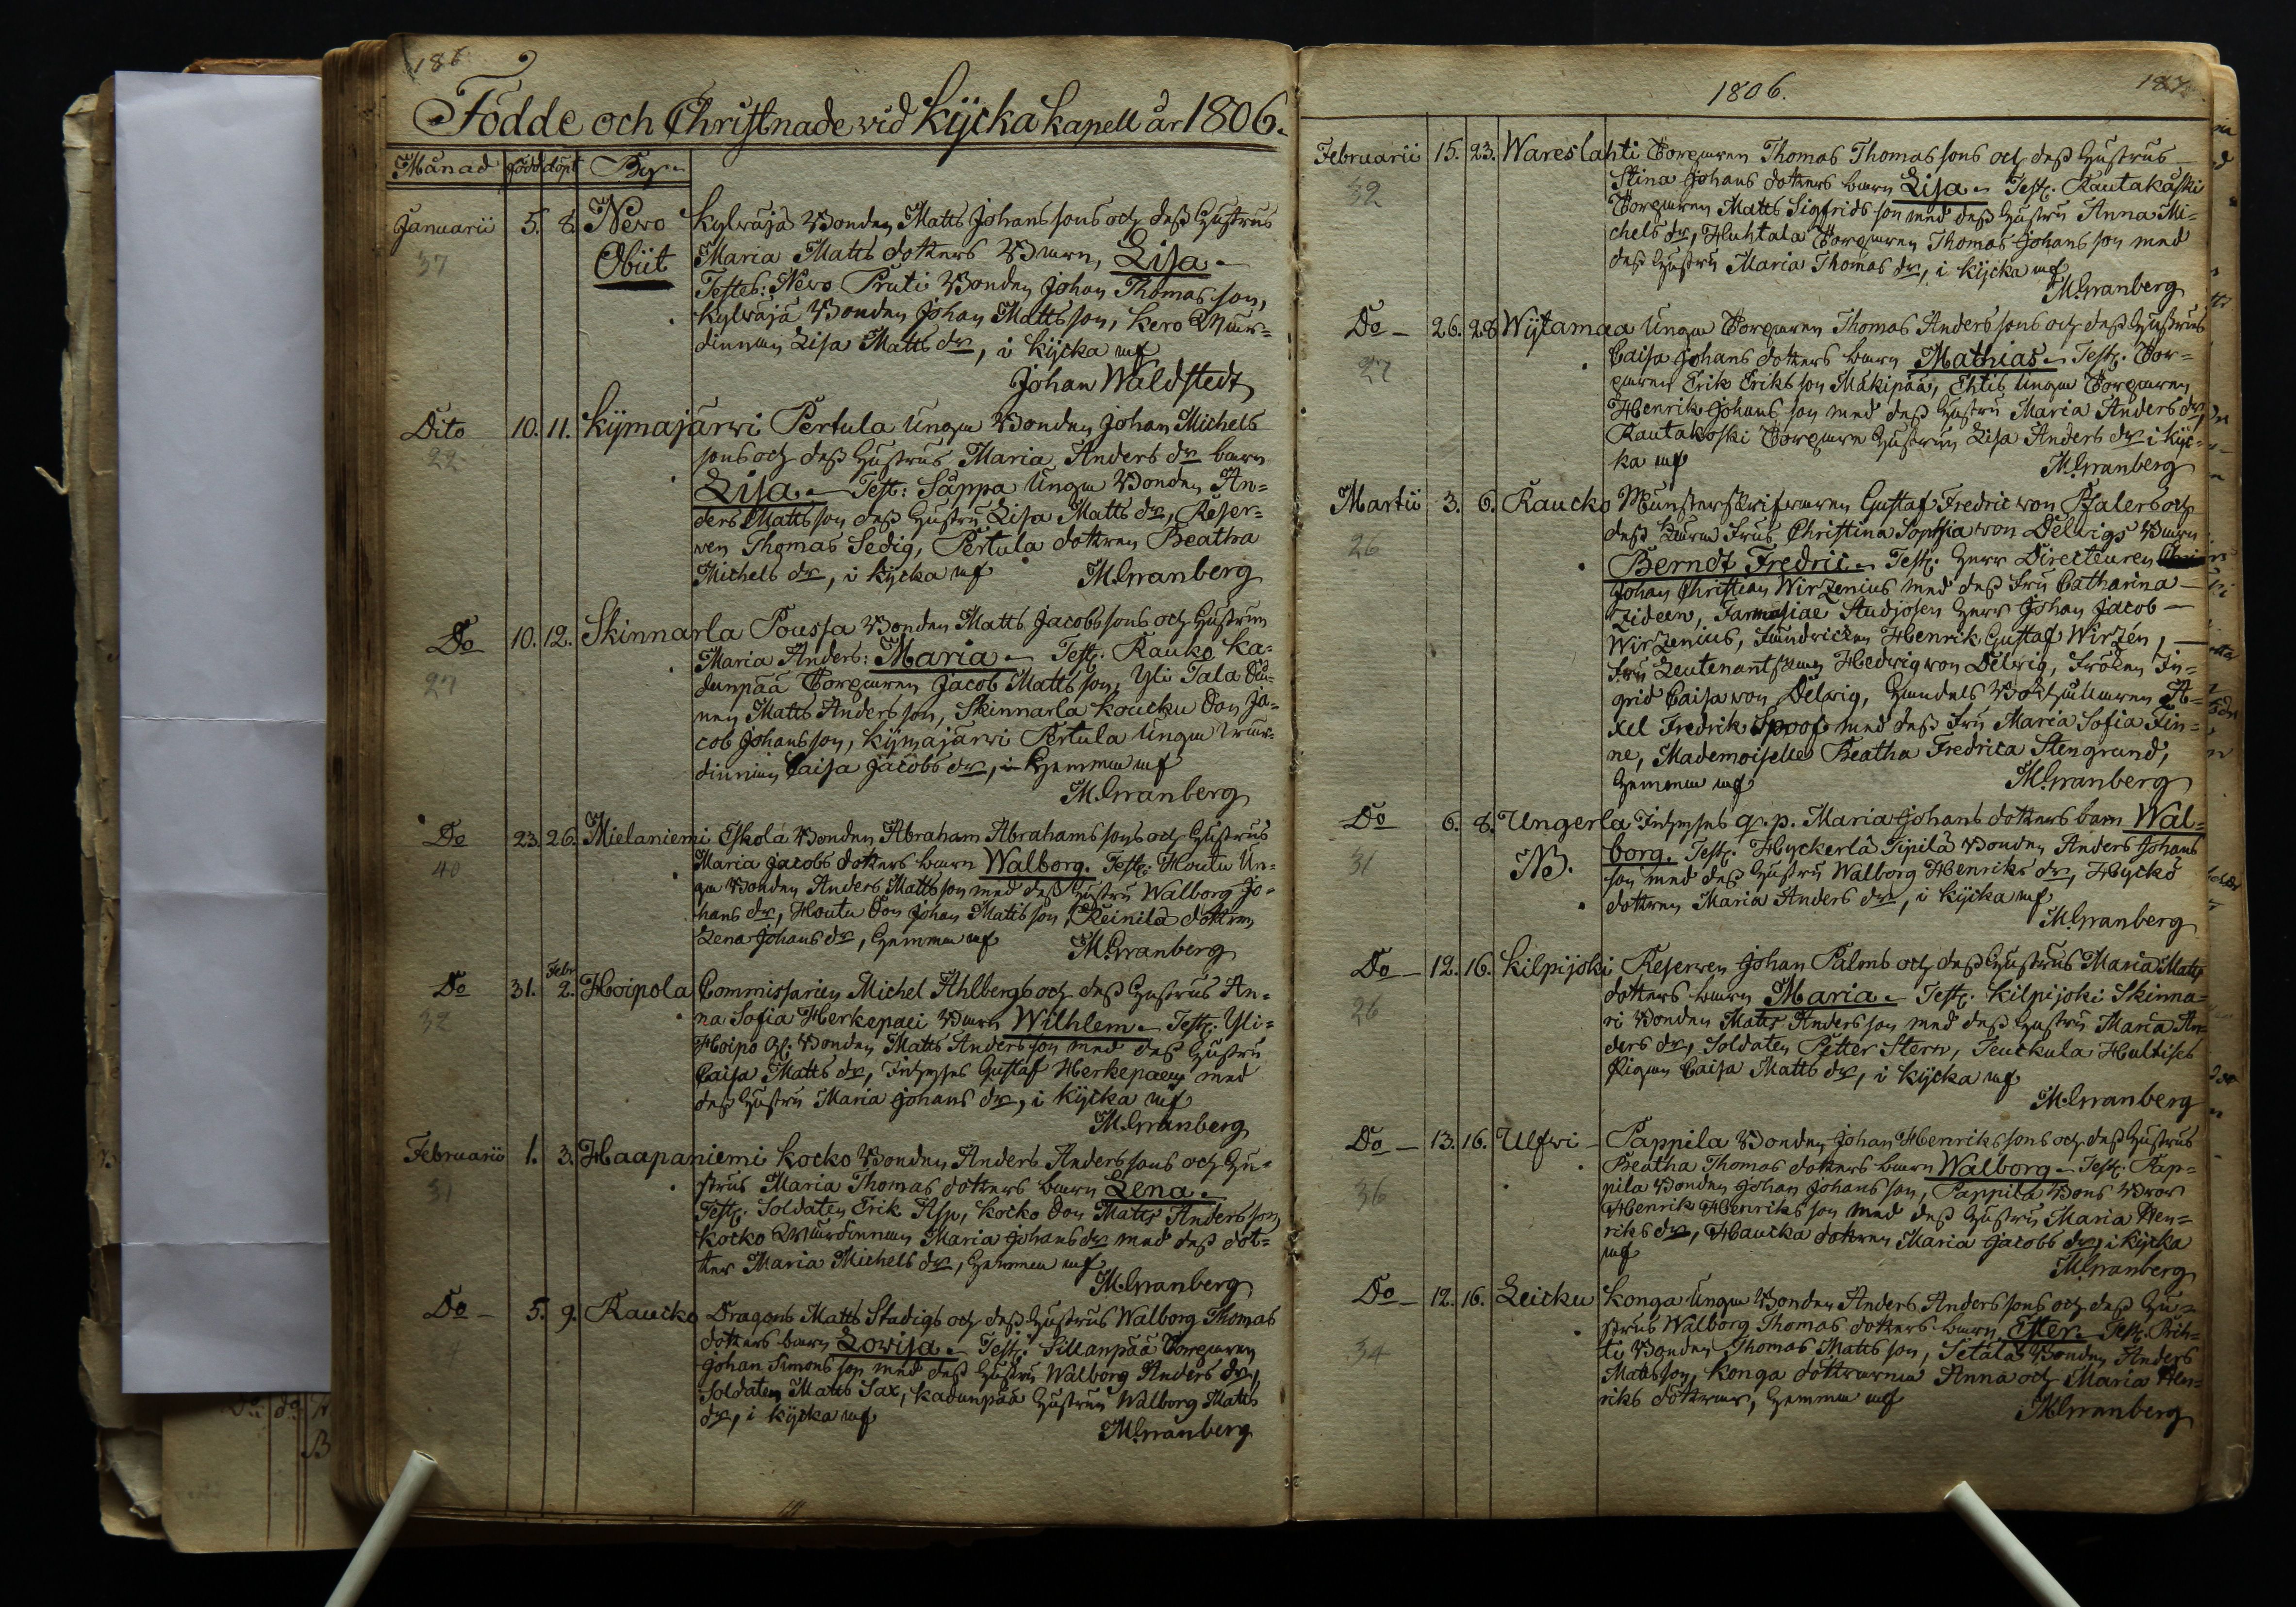 186
Födde och Christnade vid Kycka Kapell år 1806.
Månad född döpt By
Januarii 5. 8. Nevo Kylväjä Bonden Matts Johans sons och dess Hustrus
37 Obiit Maria Matts dotters Barn, Lisa
Testes: Nevo Pruti Bonden Johan Thomas son,
Kylväjä Bonden Johan Matts son, Kero
dinnan Lisa Matts dr, i Kycka mf
Johan Waldstedt
Dito 10. 11. Kymajärwi Pertula Unga Bonden Johan Michels
22 sons och dess Hustrus Maria Anders dr barn
Lisa. Test: Säppä Unga Bonden An=
ders Matts son dess Hustru Lisa Matts dr, Reser=
ven Thomas Sedig, Pertula dottren Beatha
Michels dr, i Kycka mf M. Granberg
Do 10. 12. Skinnarla Poussa Bonden Matts Jacobs sons och Hustrun
27 Maria Anders: Maria Test: Rauko Ka=
dunpää Torparen Jacob Matts son, Yli Tala
Matts Anders son, Skinnarla Koucku Son Ja=
cob Johans son, Kymajärwi Pertula Unga
dinnan Caisa Jacobs dr, i Hemman mf
M. Granberg
Do 23. 26. Mielaniemi Eskola Bonden Abraham Abrahams sons och Hustrus
40 Maria Jacobs dotters barn Walborg. Test: Houtu Un=
ga Bonden Anders Matts son med dess Hustru Walborg Jo=
hans dr, Houtu Son Johan Matts son, Reinilä dottren
Lena Johans dr, Hemman mf M. Granberg
Do 31. Febr. 2. Hoipola Commissarien Michel Ahlbergs och dess Hustrus An=
32 na Sofia Herkepaei Barn Wilhlem. Test: Yli=
Hoipo Bonden Matts Anders son med dess Hustru
Caisa Matts dr, Inhyses Gustaf Herkepaeus med
dess Hustru Maria Johans dr, i Kycka mf
M. Granberg
Februarii 1. 3. Haapaniemi Kocko Bonden Anders Anders sons och Hu=
31 strus Maria Thomas dotters barn Lena.
Test: Soldaten Erik Asp, Kocko Son Matts Anders son,
Kocko Maria Johans dr med dess dot=
ter Maria Michels dr, Hemman mf
M. Granberg
Do 5. 9. Raucko Dragons Matts Stadigs och dess Hustrus Walborg Thomas
dotters barn Lovisa. Test: Sillanpää Torparen
Johan Simons son med dess Hustru Walborg Anders dr,
Soldaten Matts Sax, Kadunpää Hustrun Walborg Matts
dr, i Kycka mf
M. Granberg
1806. 187
Februarii 15. 23. Wareslahti Torparen Thomas Thomas sons och dess Hustrus
32 Stina Johans dotters barn Lisa. Test: Rautakåski
Torparen Matts Sigfrids son med dess Hustru Anna Mi=
chels dr, Huhtala Torparen Thomas Johans son med
dess Hustru Maria Thomas dr, i Kycka mf
M. Granberg
Do 26. 28. Wijtamaa Unga Torparen Thomas Anders sons och dess Hustrus
27 Caisa Johans dotters barn Mathias. Test: Tor=
paren Erik Eriks son Mäkipää, Ehtis Unga Torparen
Henrik Johans son med dess Hustru Maria Anders dr,
Rautakoski Torpare Hustrun Lisa Anders dr i Kyc=
ka mf M. Granberg
Martii 3. 6. Raucko Munsterskrifvaren Gustaf Fredric von Pfalers och
26 dess Kära Frus Christina Sophia von Delvigs Barn
Berndt Fredric. Test: Herr Directeuren
Johan Christian Wirzenius med dess Fru Catharina
Zideen, Farmasiae Studiosen Herr Johan Jacob
Wirzenius, Henrik Gustaf Wirzén,
Fru Leutenantskan Hedvig von Delvig, Fröken In=
grid Caisa von Delvig, Handels Bokhållaren A=
xel Fredrik Spoof med dess Fru Maria Sofia Fin=
ne, Mademoiselle Beatha Fredrica Stengrund,
Hemman mf M. Granberg
Do 6. 8. Ungerla Inhyses q. p. Maria Johans dotters barn Wal=
31 NB. borg. Test: Hyckerlä Pipilä Bonden Anders Johans
son med dess Hustru Walborg Henriks dr, Hyckö
dottren Maria Anders dr, i Kycka mf
M. Granberg
Do 12. 16. Kilpijoki Reserven Johan Palms och dess Hustrus Maria Matts
26 dotters barn Maria. Test: Kilpijoki Skinna=
ri Bonden Matts Anders son med dess Hustru Maria An=
ders dr, Soldaten Petter Stern, Teuckula Hultises
Pigan Caisa Matts dr, i Kycka mf
M. Granberg
Do 13. 16. Ulfwi Pappila Bonden Johan Henriks sons och dess Hustrus
36 Beatha Thomas dotters barn Walborg. Test: Pap=
pila Bonden Johan Johans son, Pappila Bons Bror
Henrik Henriks son med dess Hustru Maria Hen=
riks dr, Haucka dottren Maria Jacobs dr, i Kycka
mf M. Granberg
Do 12. 16. Leicku Konga Unga Bonden Anders Anders sons och dess Hu=
34 strus Walborg Thomas dotters barn Ester. Test: Prih=
ti Bonden Thomas Matts son, Setälä Bonden Anders
Matts son, Konga döttrarna Anna och Maria Hen=
riks döttrar, Hemman mf
M. Granberg